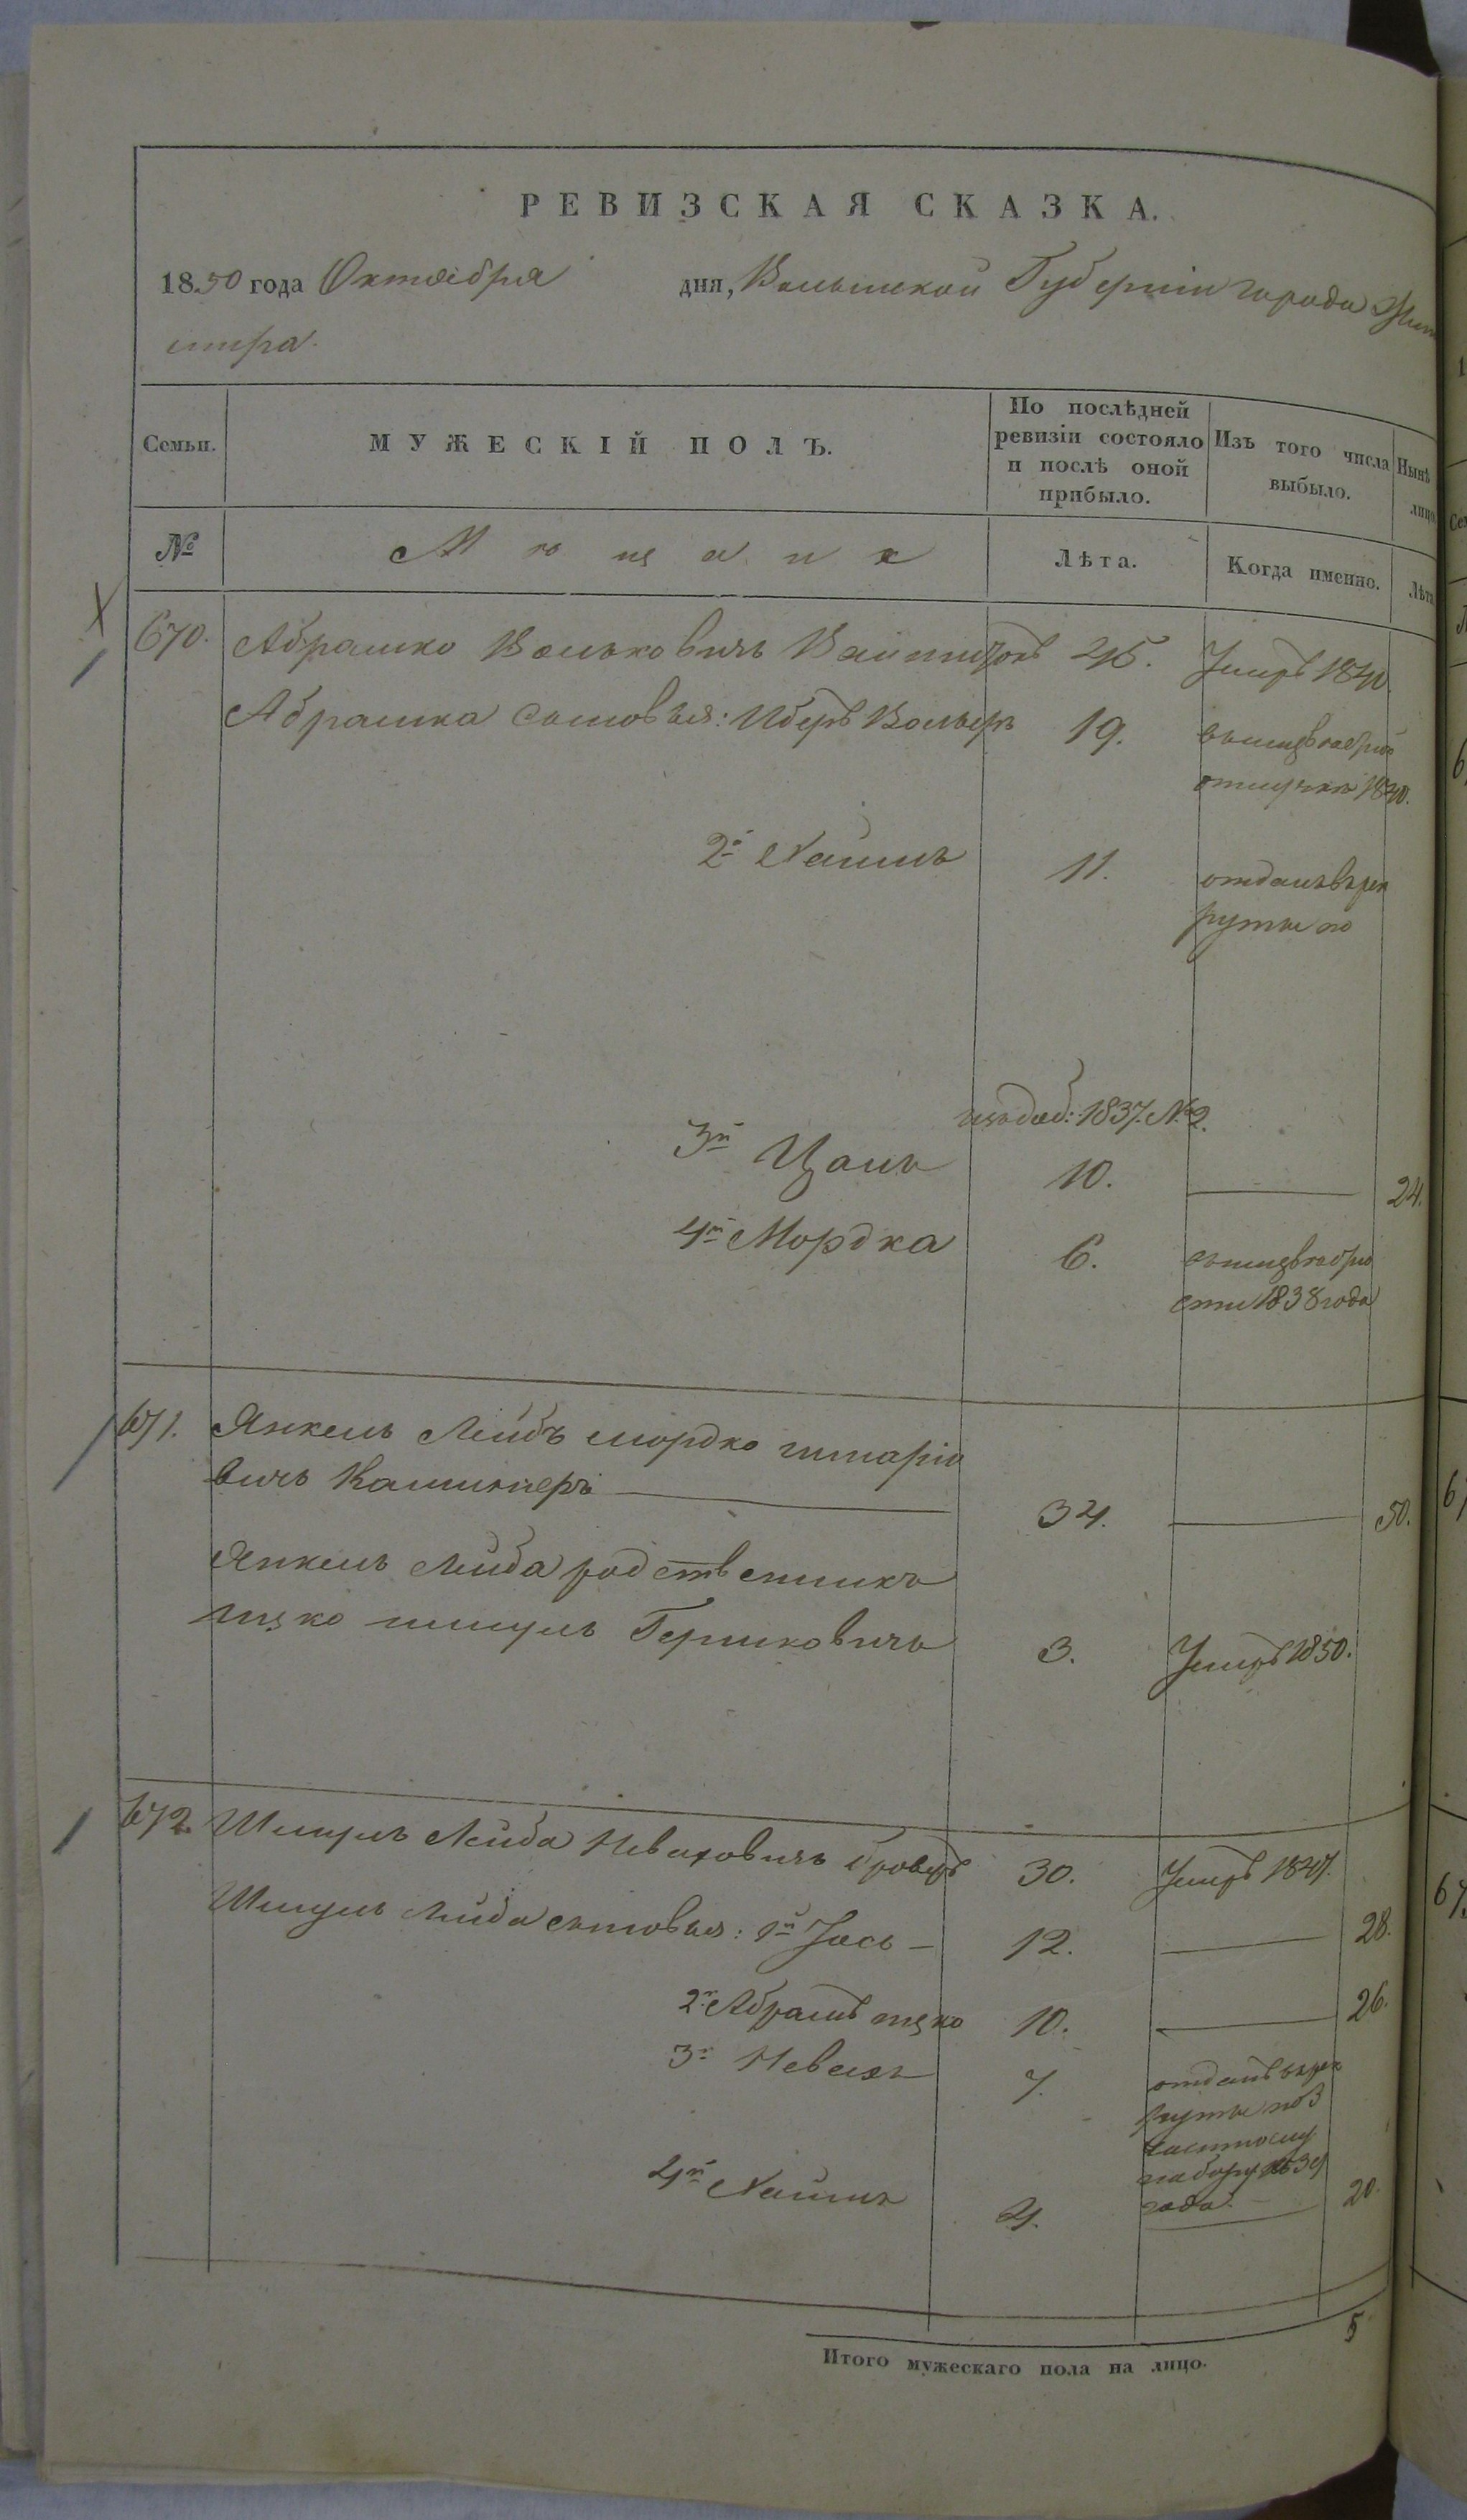 РЕВИЗСКАЯ СКАЗКА.
1850 года Октября дня, Волынской Губерніи города Жит
мира.
Семьи. МУЖЕСКІЙ ПОЛЪ. По послѣдней ревизіи состояло и послѣ оной прибыло. Изъ того числа выбыло. Нынѣ лицо
№ Мѣщане Лѣта. Когда именно. Лѣта
670. Абрашко Вольковичъ 45. Умеръ 1840.
Абрашка сыновья: Вольеръ 19.
отлучкѣ 1840.
2й Хаимъ 11. отданъ въ рек
руты по
1837. № 2.
3й Цаль 10. 24.
4й Мордка 6.
сти 1838 года
671. Янкель Лейбъ Мордко
вичъ 34. 50.
Янкель Лейба родственникъ
Ицко Шмуль Гершковичъ 3. Умеръ 1850.
672. Шмуль Лейба Неваховичъ Броверъ 30. Умеръ 1847.
Шмуль Лейба сыновья: 1й Іось 12. 28.
2й Абрамъ Ицко 10. 26.
3й Невахъ 7. отданъ въ рек
руты по 3
частному
набору 1839
года.
4й Хаимъ 4. 20.
5
Итого мужескаго пола на лицо.